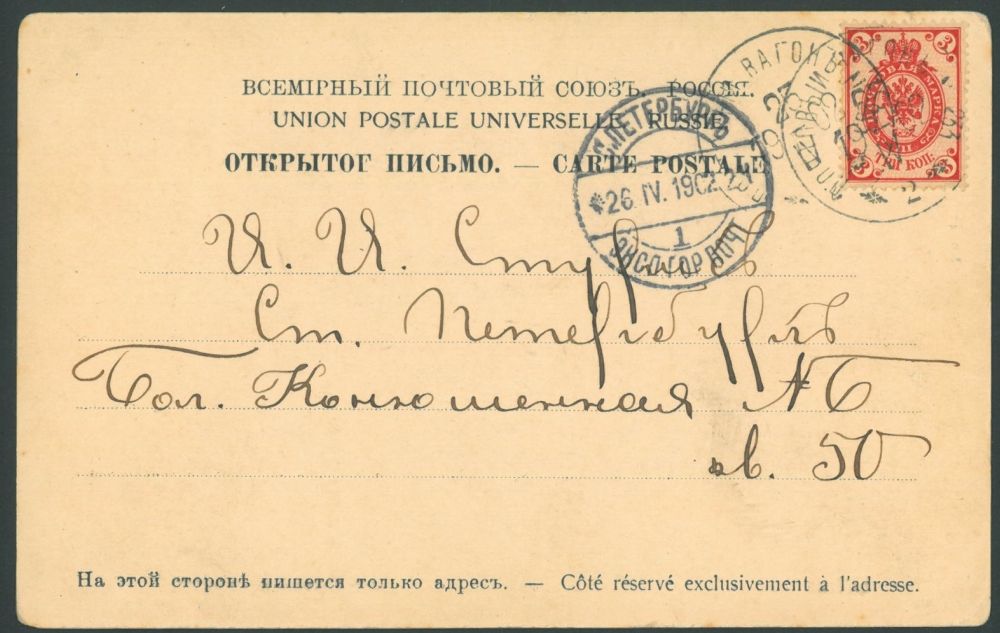 ВСЕМІРНЫЙ ПОЧТОВЫЙ СОЮЗЪ. РОССІЯ.
UNION POSTALE UNIVERSELLE. RUSSIE
ОТКРЫТОГ ПИСЬМО. — CARTE POSTALE
3 3
ТРИ КОП.
ВАГОНЪ
С.ПЕТЕРБУРГЪ
*26. IV. 1902
1
ЭКСП. ГОР. ПОЧТ
И. И.
Ст. Петербургъ
Бол. Конюшенная № 6
кв. 50
На этой сторонѣ пишется только адресъ. — Côté réservé exclusivement à l'adresse.